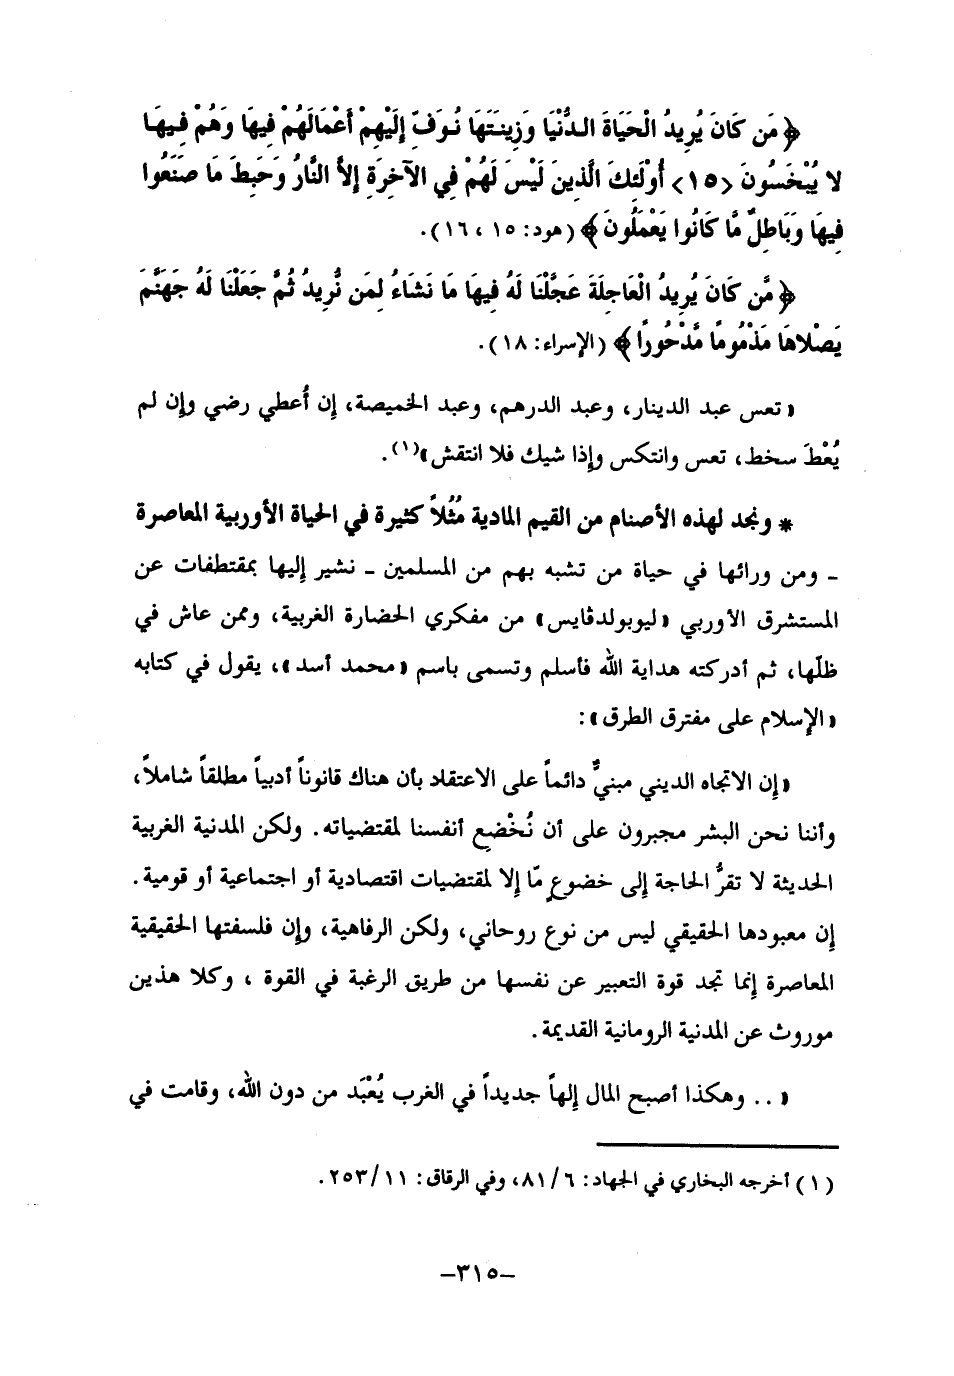 ﴿مَن كَانَ يُرِيدُ الْحَيَاةَ الدُّنْيَا وَزِينَتَهَا نُوَفِّ إِلَيْهِمْ أَعْمَالَهُمْ فِيهَا وَهُمْ فِيهَا
لا يُبْخَسُونَ <١٥> أُوْلَئِكَ الَّذِينَ لَيْسَ لَهُمْ فِي الآخِرَةِ إِلاَّ النَّارُ وَحَبِطَ مَا صَنَعُوا
فِيهَا وَبَاطِلٌ مَّا كَانُوا يَعْمَلُونَ﴾ (هود: ١٥ ، ١٦).
﴿مَّن كَانَ يُرِيدُ الْعَاجِلَةَ عَجَّلْنَا لَهُ فِيهَا مَا نَشَاءُ لِمَن نُّرِيدُ ثُمَّ جَعَلْنَا لَهُ جَهَنَّمَ
يَصْلاهَا مَذْمُوماً مَّدْحُوراً﴾ (الإسراء: ١٨).
«تعس عبد الدينار، وعبد الدرهم، وعبد الخميصة، إن أُعطي رضي وإن لم
يُعْطَ سخط، تعس وانتكس وإذا شيك فلا انتقش»(١).
* ونجد لهذه الأصنام من القيم المادية مُثُلاً كثيرة في الحياة الأوربية المعاصرة
ـ ومن ورائها في حياة من تشبه بهم من المسلمين ـ نشير إليها بمقتطفات عن
المستشرق الأوربي «ليوبولدڤايس» من مفكري الحضارة الغربية، وممن عاش في
ظلّها، ثم أدركته هداية الله فأسلم وتسمى باسم «محمد أسد»، يقول في كتابه
«الإسلام على مفترق الطرق»:
«إن الاتجاه الديني مبنيٌّ دائماً على الاعتقاد بأن هناك قانوناً أدبياً مطلقاً شاملاً،
وأننا نحن البشر مجبرون على أن نُخْضِع أنفسنا لمقتضياته. ولكن المدنية الغربية
الحديثة لا تقرُّ الحاجة إلى خضوعٍ مّا إلا لمقتضيات اقتصادية أو اجتماعية أو قومية.
إن معبودها الحقيقي ليس من نوع روحاني، ولكن الرفاهية، وإن فلسفتها الحقيقية
المعاصرة إنما تجد قوة التعبير عن نفسها من طريق الرغبة في القوة ، وكلا هذين
موروث عن المدنية الرومانية القديمة.
«.. وهكذا أصبح المال إلهاً جديداً في الغرب يُعْبَد من دون الله، وقامت في
(١) أخرجه البخاري في الجهاد: ٨١/٦، وفي الرقاق: ٢٥٣/١١.
–٣١٥–